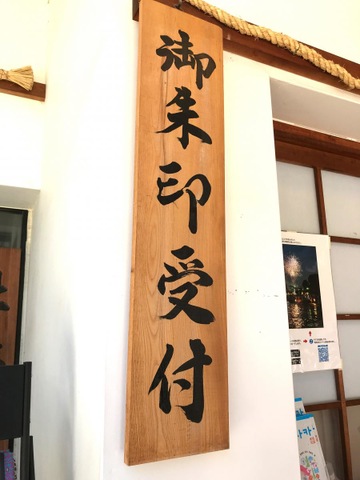 御朱印受付